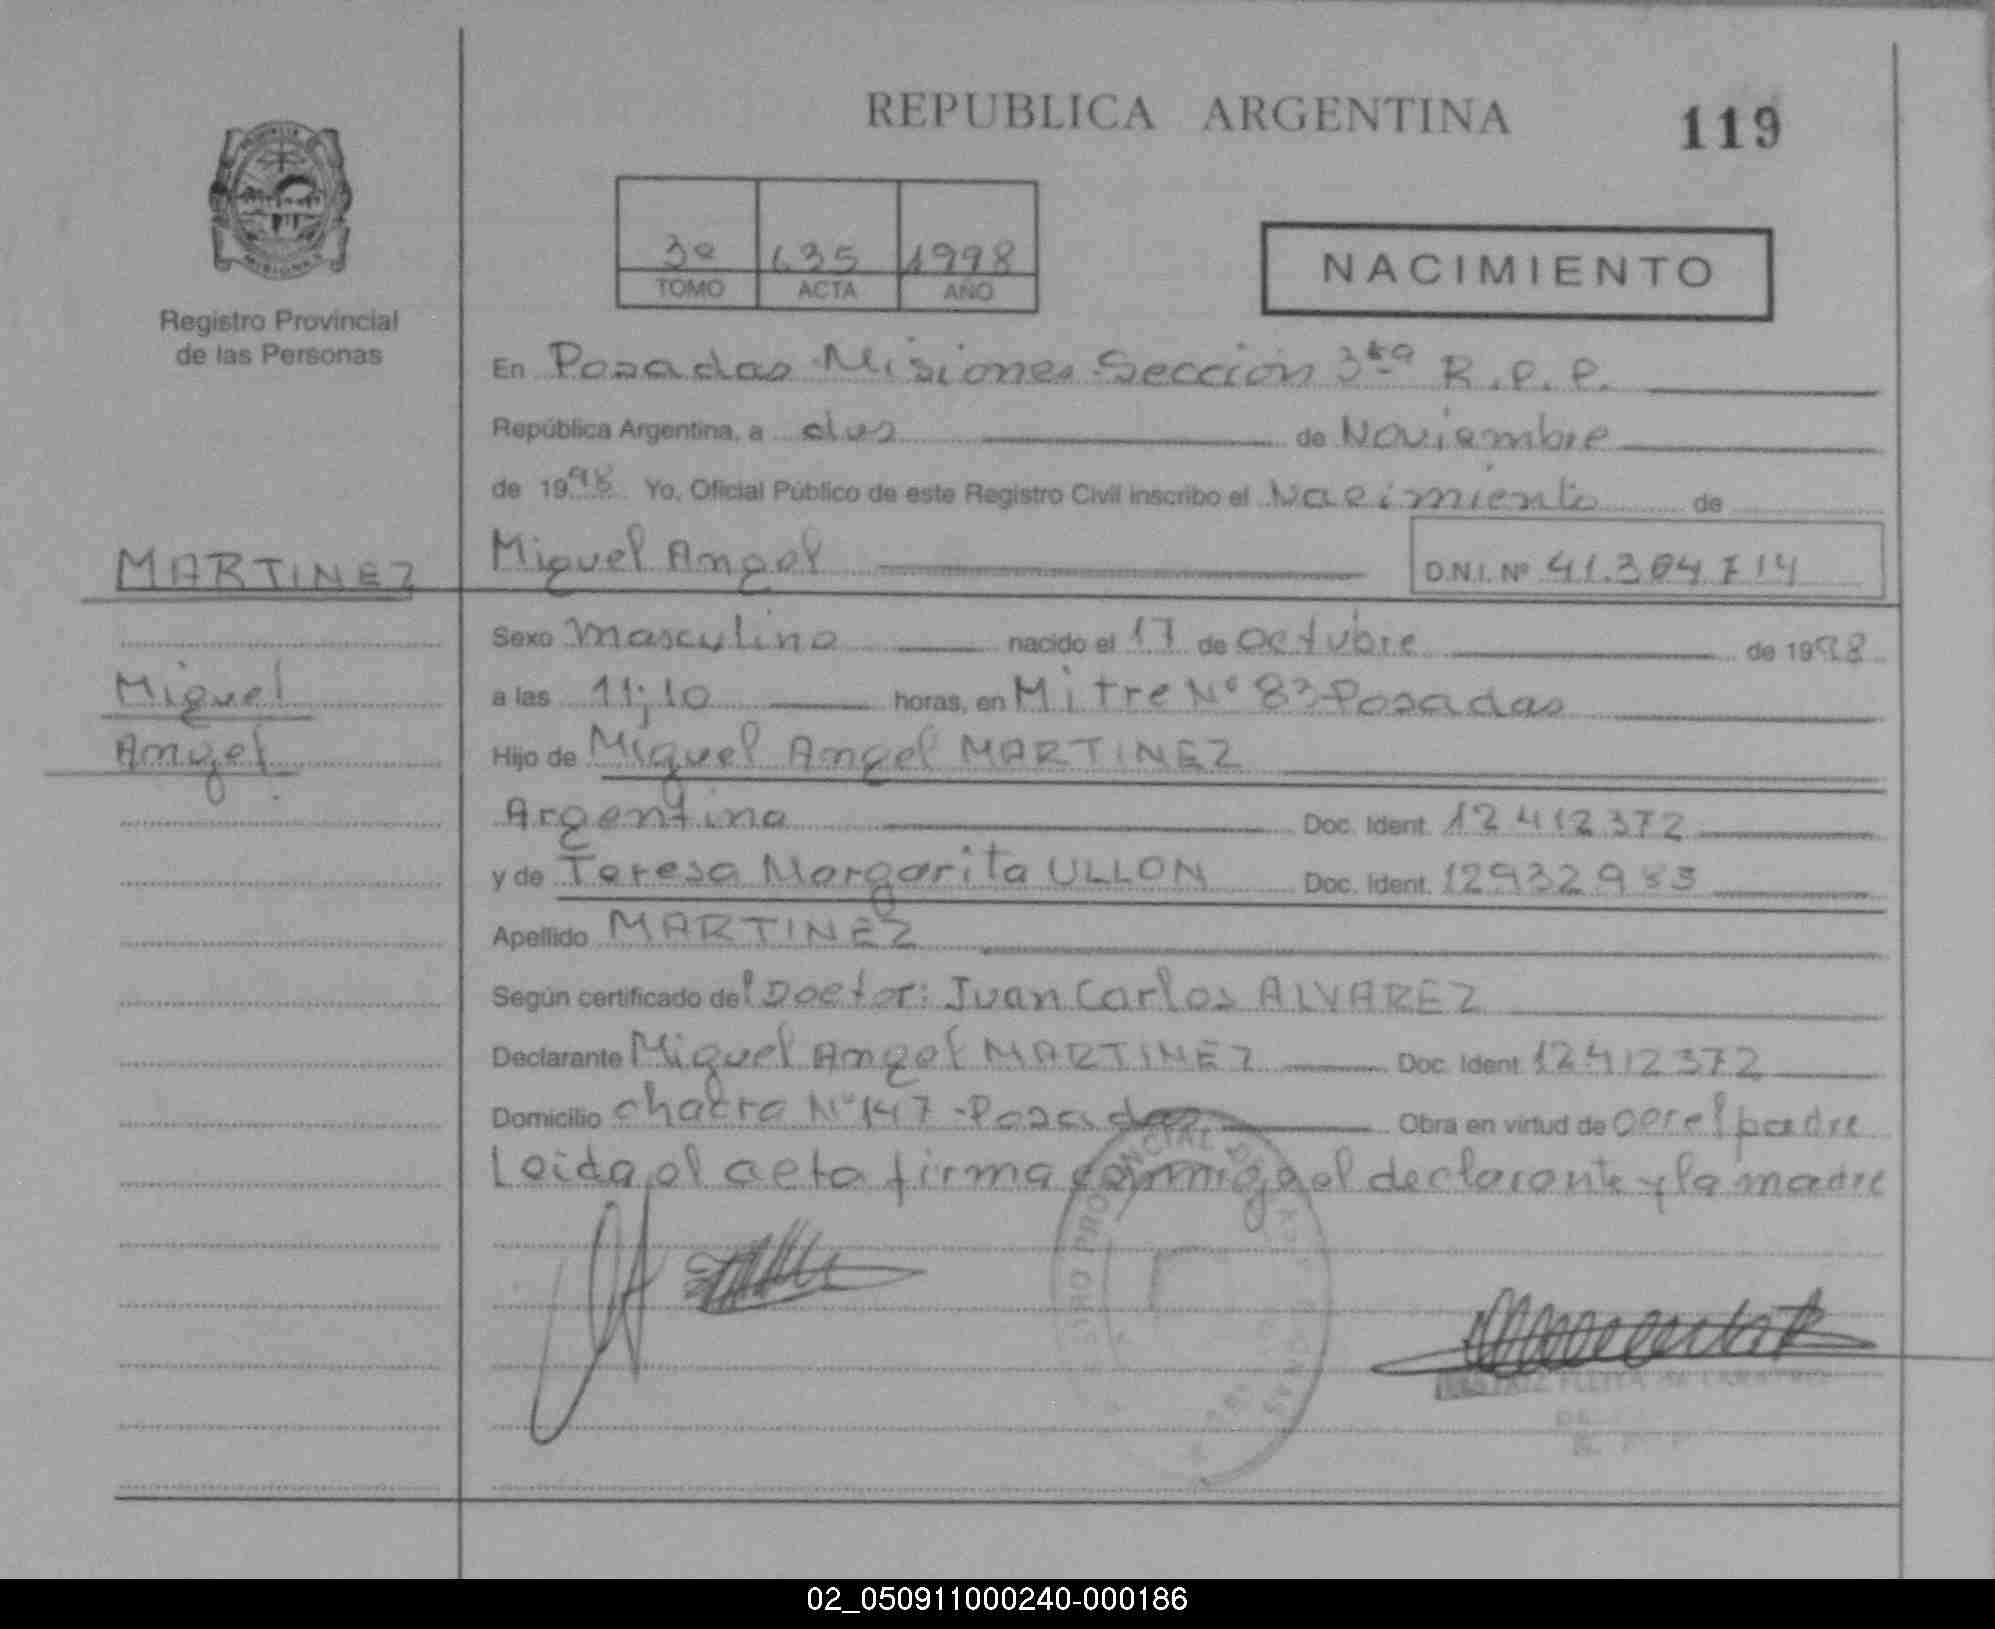 REPUBLICA ARGENTINA
119
3º 635 1998
TOMO ACTA AÑO
NACIMIENTO
Registro Provincial
de las Personas
En Posadas Misiones Sección 3ra R.P.P.
República Argentina, a dos de Noviembre
de 1998 Yo, Oficial Público de este Registro Civil inscribo el Nacimiento de
MARTINEZ
Miguel Angel
D.N.I. Nº 41.304.714
Sexo Masculino nacido el 17 de octubre de 1998
Miguel
a las 11;10 horas, en Mitre Nº 83 Posadas
Angel
Hijo de Miguel Angel MARTINEZ
Argentina Doc. Ident. 12412372
y de Teresa Margarita ULLON Doc. Ident. 12932983
Apellido MARTINEZ
Según certificado del Doctor: Juan Carlos ALVAREZ
Declarante Miguel Angel MARTINEZ Doc. Ident. 12412372
Domicilio chacra Nº 147 - Posadas Obra en virtud de ser el padre
Leida el acta firma conmigo el declarante y la madre
02_050911000240-000186